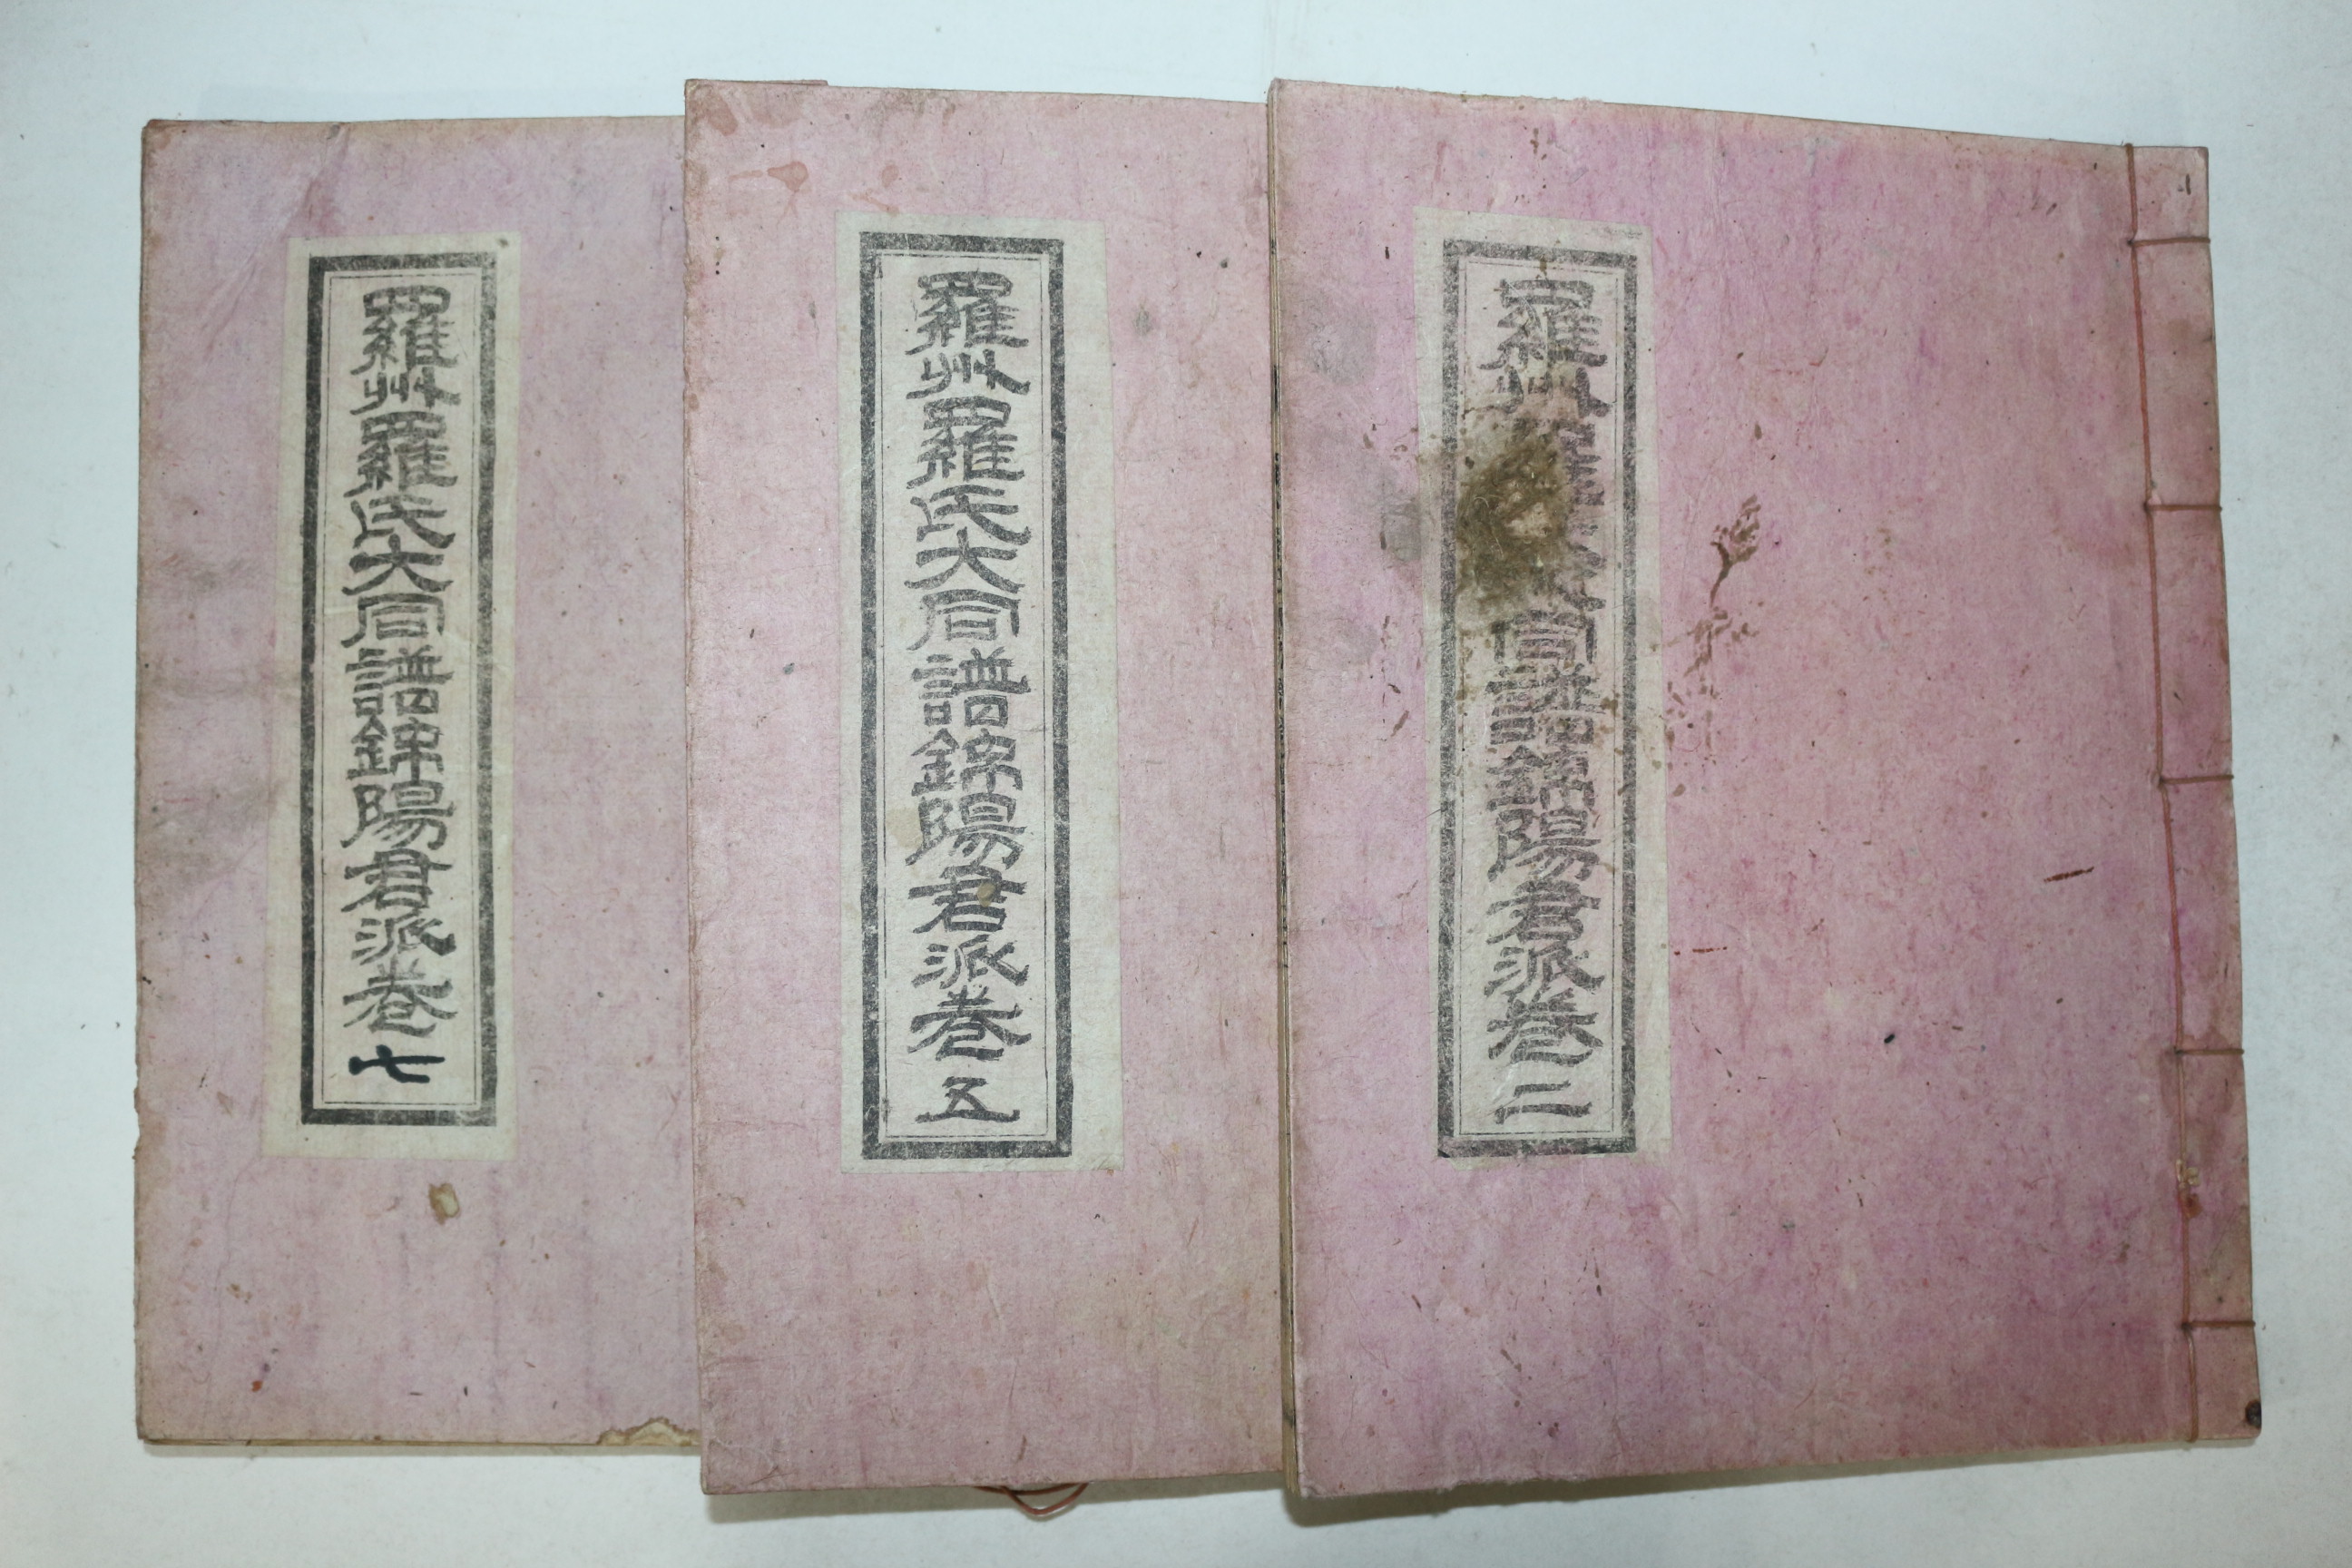 羅州羅氏大同譜錦陽君派卷二
羅州羅氏大同譜錦陽君派卷五
羅州羅氏大同譜錦陽君派卷七